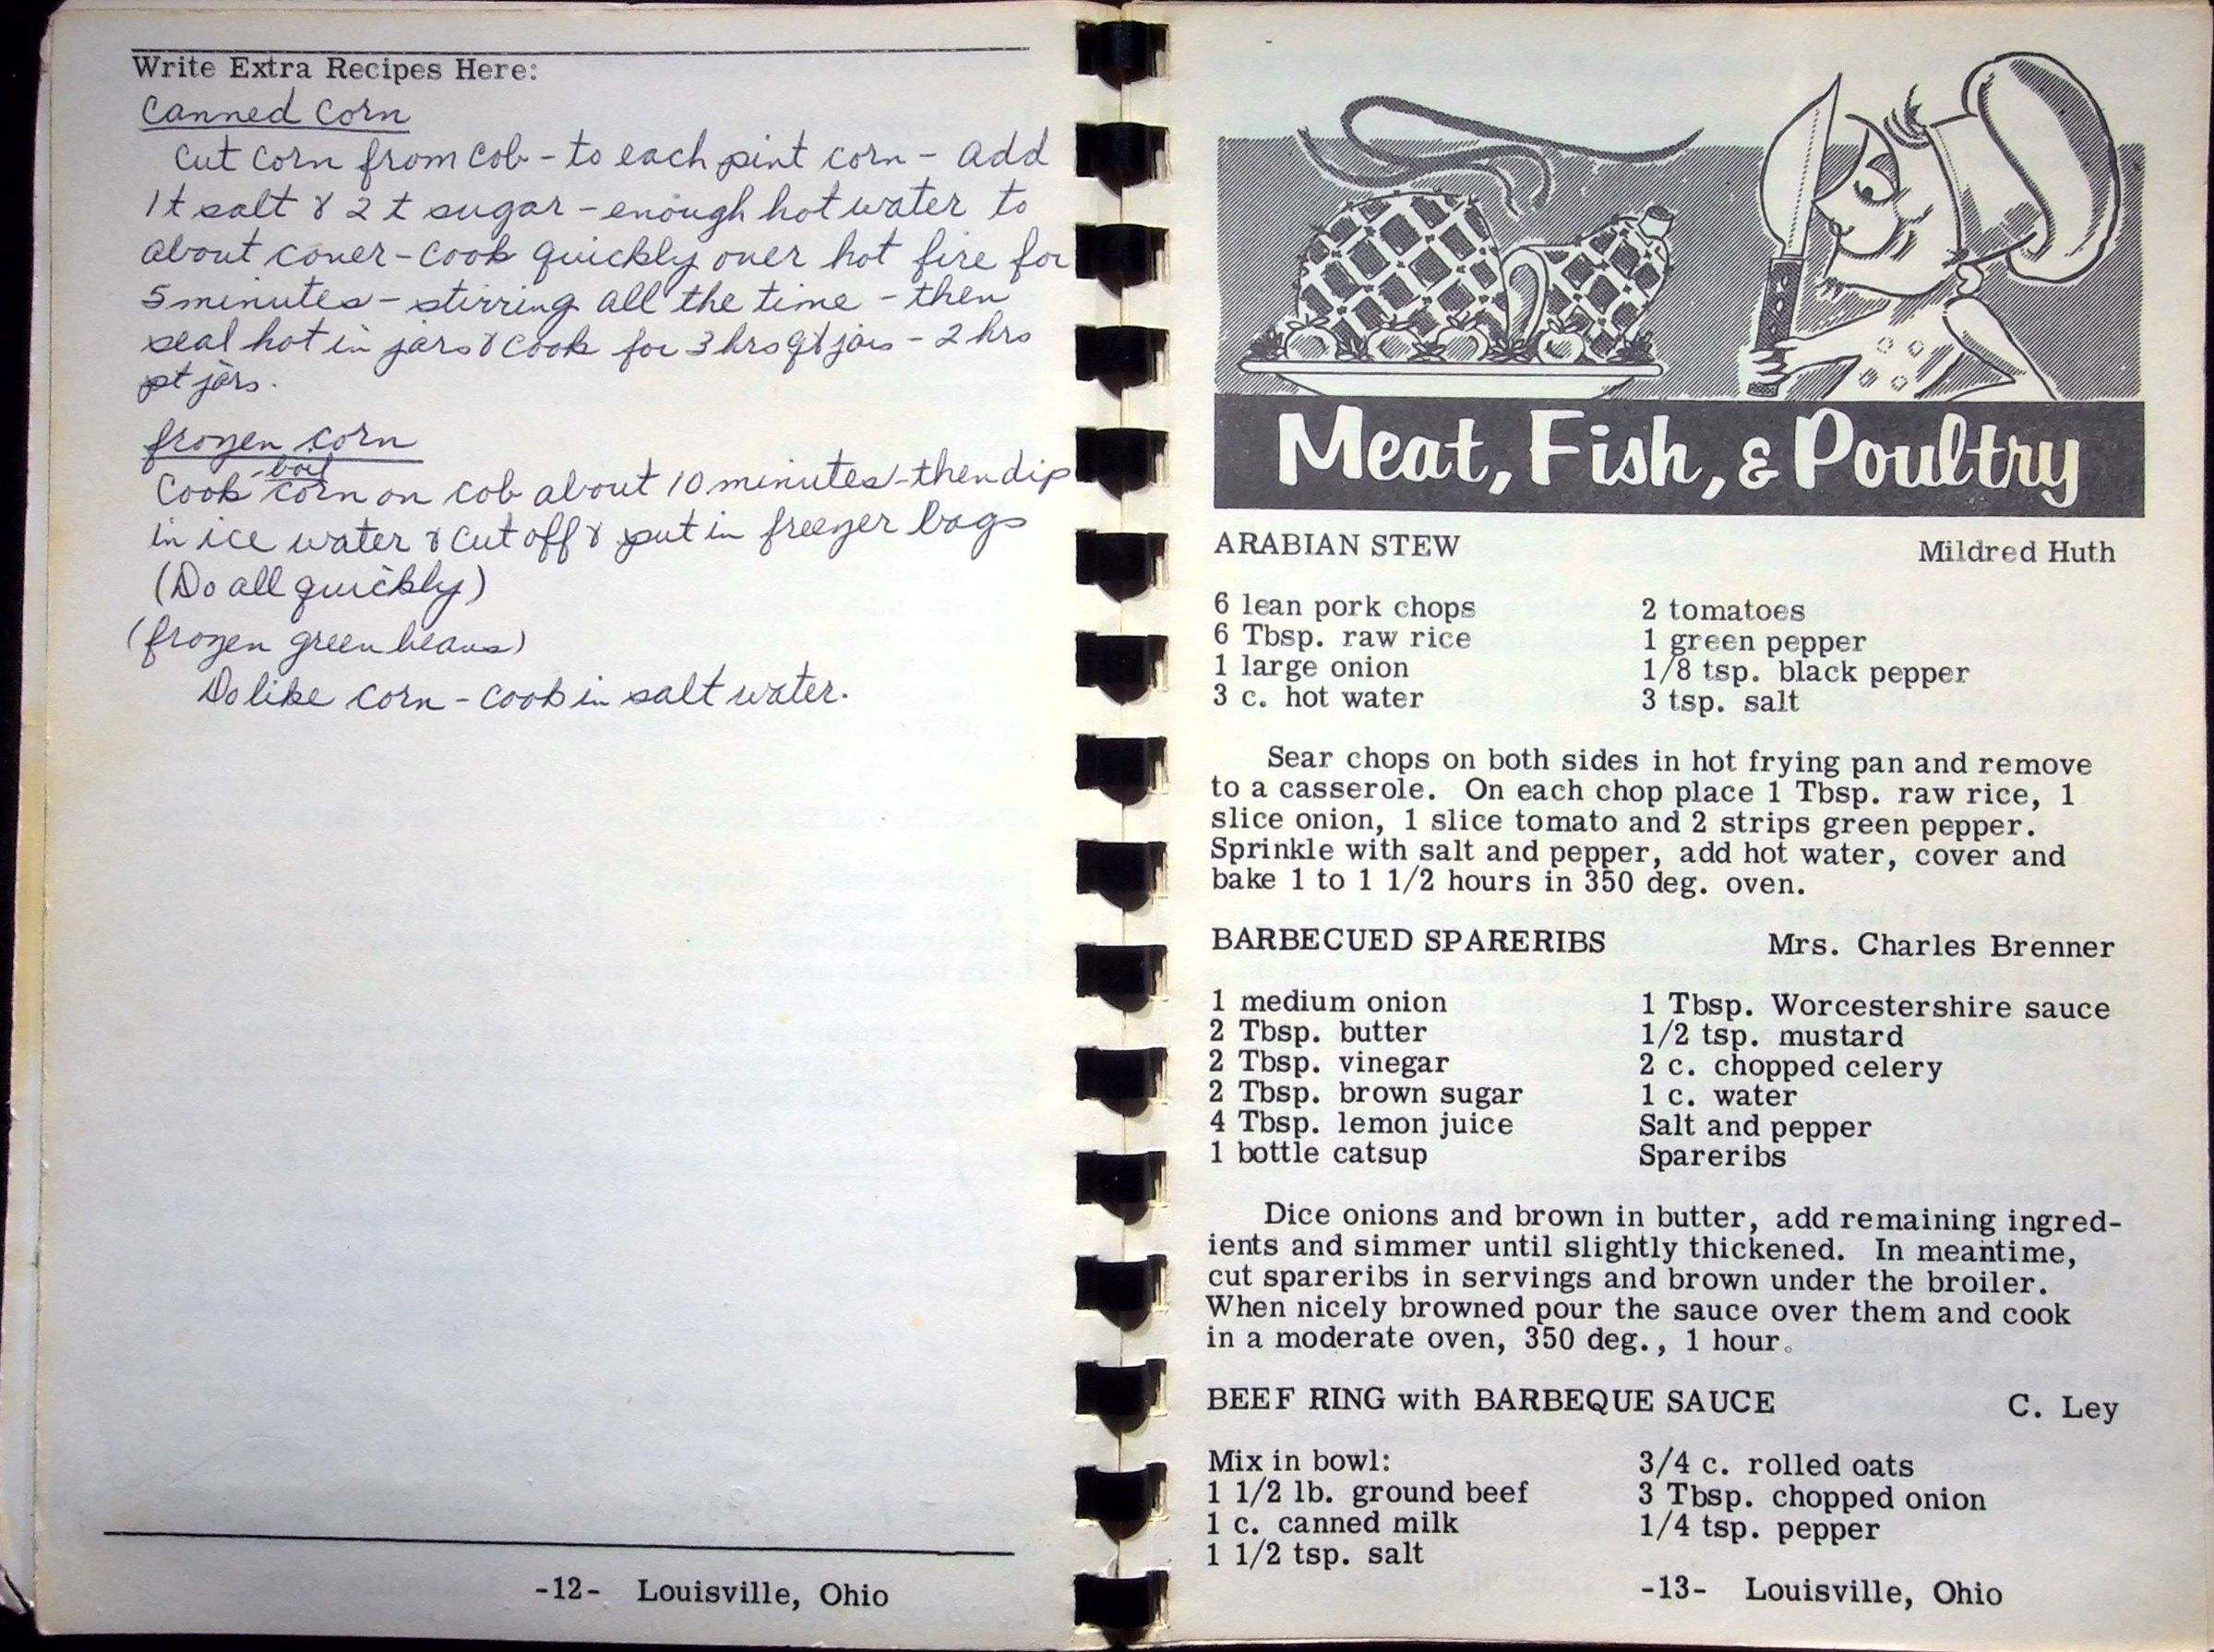 Write Extra Recipes Here:
Canned Corn
Cut corn from cob - to each pint corn - add
1 t salt & 2 t sugar - enough hot water to
about cover - cook quickly over hot fire for
5 minutes - stirring all the time - then
seal hot in jars & cook for 3 hrs qt jars - 2 hrs
pt jars.
frozen corn
-boil
Cook corn on cob about 10 minutes - then dip
in ice water & cut off & put in freezer bags
(Do all quickly)
(frozen green beans)
Do like corn - cook in salt water.
-12- Louisville, Ohio
Meat, Fish, & Poultry
ARABIAN STEW Mildred Huth
6 lean pork chops 2 tomatoes
6 Tbsp. raw rice 1 green pepper
1 large onion 1/8 tsp. black pepper
3 c. hot water 3 tsp. salt
Sear chops on both sides in hot frying pan and remove
to a casserole. On each chop place 1 Tbsp. raw rice, 1
slice onion, 1 slice tomato and 2 strips green pepper.
Sprinkle with salt and pepper, add hot water, cover and
bake 1 to 1 1/2 hours in 350 deg. oven.
BARBECUED SPARERIBS Mrs. Charles Brenner
1 medium onion 1 Tbsp. Worcestershire sauce
2 Tbsp. butter 1/2 tsp. mustard
2 Tbsp. vinegar 2 c. chopped celery
2 Tbsp. brown sugar 1 c. water
4 Tbsp. lemon juice Salt and pepper
1 bottle catsup Spareribs
Dice onions and brown in butter, add remaining ingred-
ients and simmer until slightly thickened. In meantime,
cut spareribs in servings and brown under the broiler.
When nicely browned pour the sauce over them and cook
in a moderate oven, 350 deg., 1 hour.
BEEF RING with BARBEQUE SAUCE C. Ley
Mix in bowl: 3/4 c. rolled oats
1 1/2 lb. ground beef 3 Tbsp. chopped onion
1 c. canned milk 1/4 tsp. pepper
1 1/2 tsp. salt
-13- Louisville, Ohio